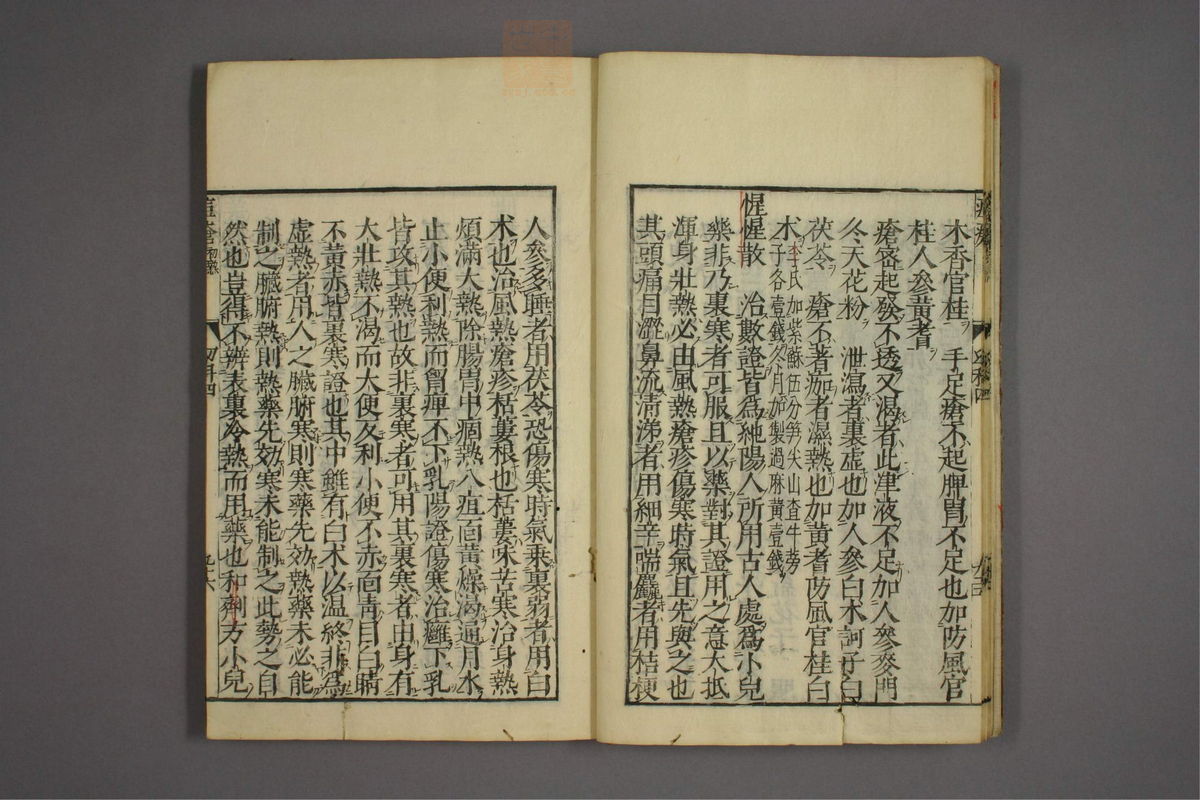 木香官桂　手足瘡不起脾胃不足也加防風官
桂人參黃耆
瘡密起發不透又渴者此津液不足加人參麥門
冬天花粉　泄瀉者裏虛也加人參白术訶子白
茯苓　瘡不著痂者濕熱也加黃耆防風官桂白
术李氏加紫蘇伍分笋尖山査牛蒡
子各壹錢冬月加製過麻黃壹錢
惺惺散　治數證皆爲純陽人所用古人處爲小兒
藥非乃裏寒者可服且以藥對其證用之意大抵
渾身壯熱必由風熱瘡疹傷寒時氣且先與之也
其頭痛目澀鼻流清涕者用細辛喘麤者用桔梗
人參多睡者用茯苓恐傷寒時氣乘裏弱者用白
术也治風熱瘡疹栝蔞根也栝蔞味苦寒治身熱
煩滿大熱除腸胃中痼熱八疸面黃燥渴通月水
止小便利熱而曾痺不下乳陽證傷寒治癰下乳
皆攻其熱也故非裏寒者可用其裏寒者由身有
大壯熱不渴而大便及利小便不赤面靑目白睛
不黃赤皆裏寒證也其中雖有白术以温終非爲
虛熱者用人之臟腑寒則寒藥先効熱藥未必能
制之臟腑熱則熱藥先効寒未能制之此勢之自
然也豈得不辨表裏冷熱而用藥也和劑方小兒